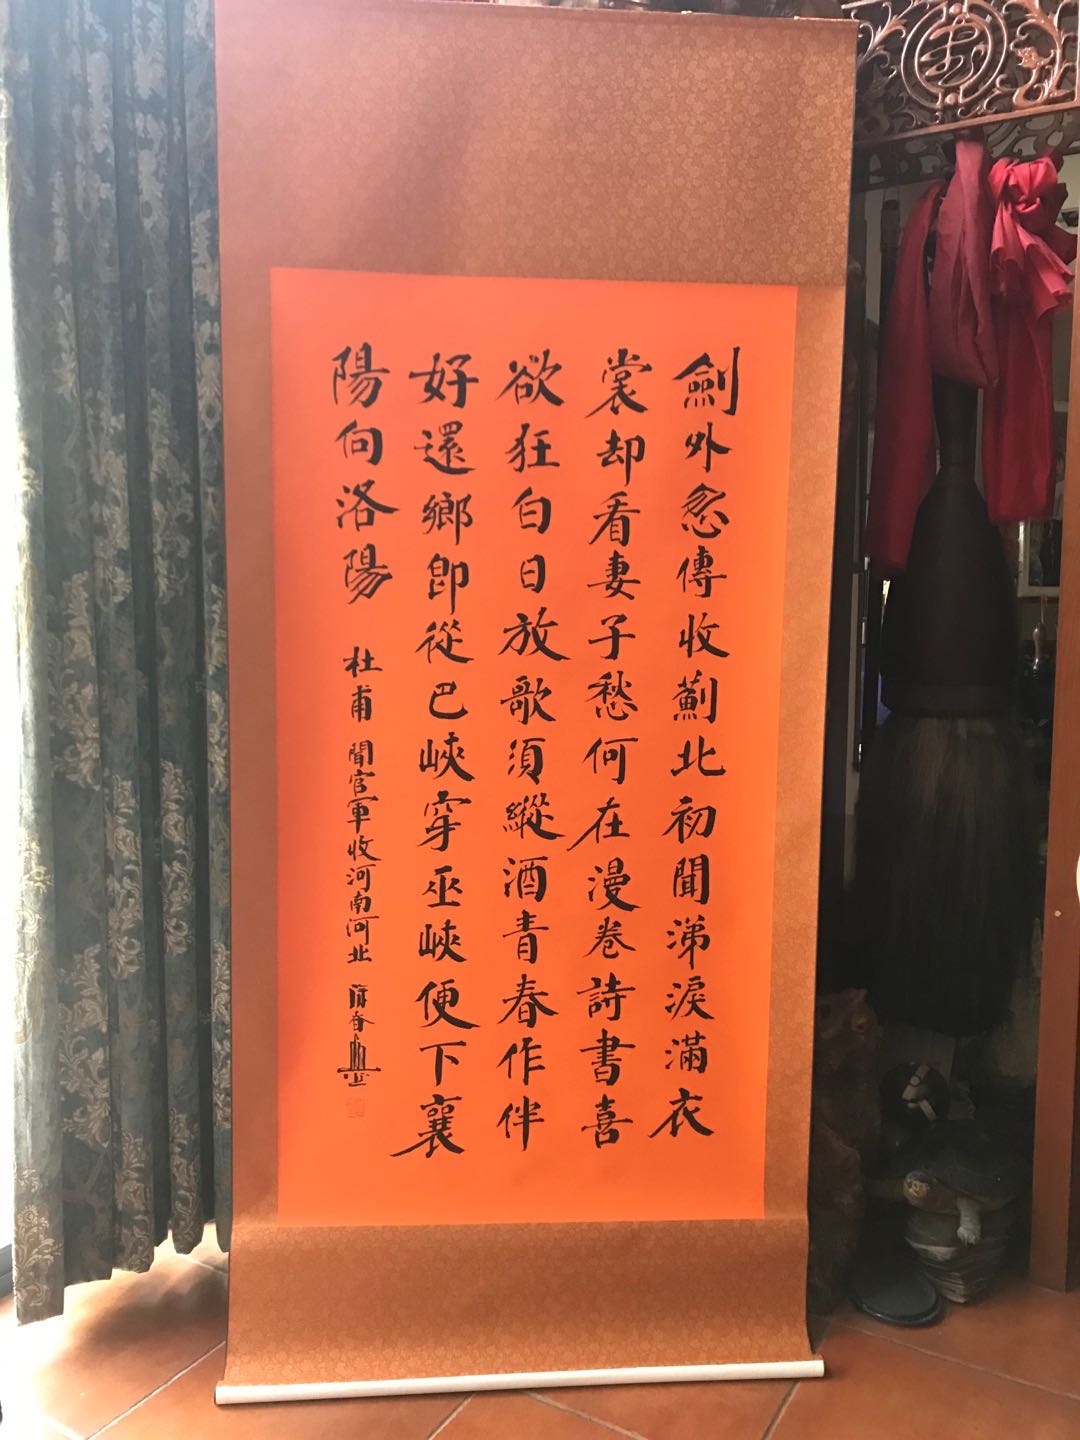 劍外忽傳收薊北初聞涕淚滿衣
裳却看妻子愁何在漫卷詩書喜
欲狂白日放歌須縱酒青春作伴
好還鄉即從巴峽穿巫峽便下襄
陽向洛陽 杜甫 聞官軍收河南河北